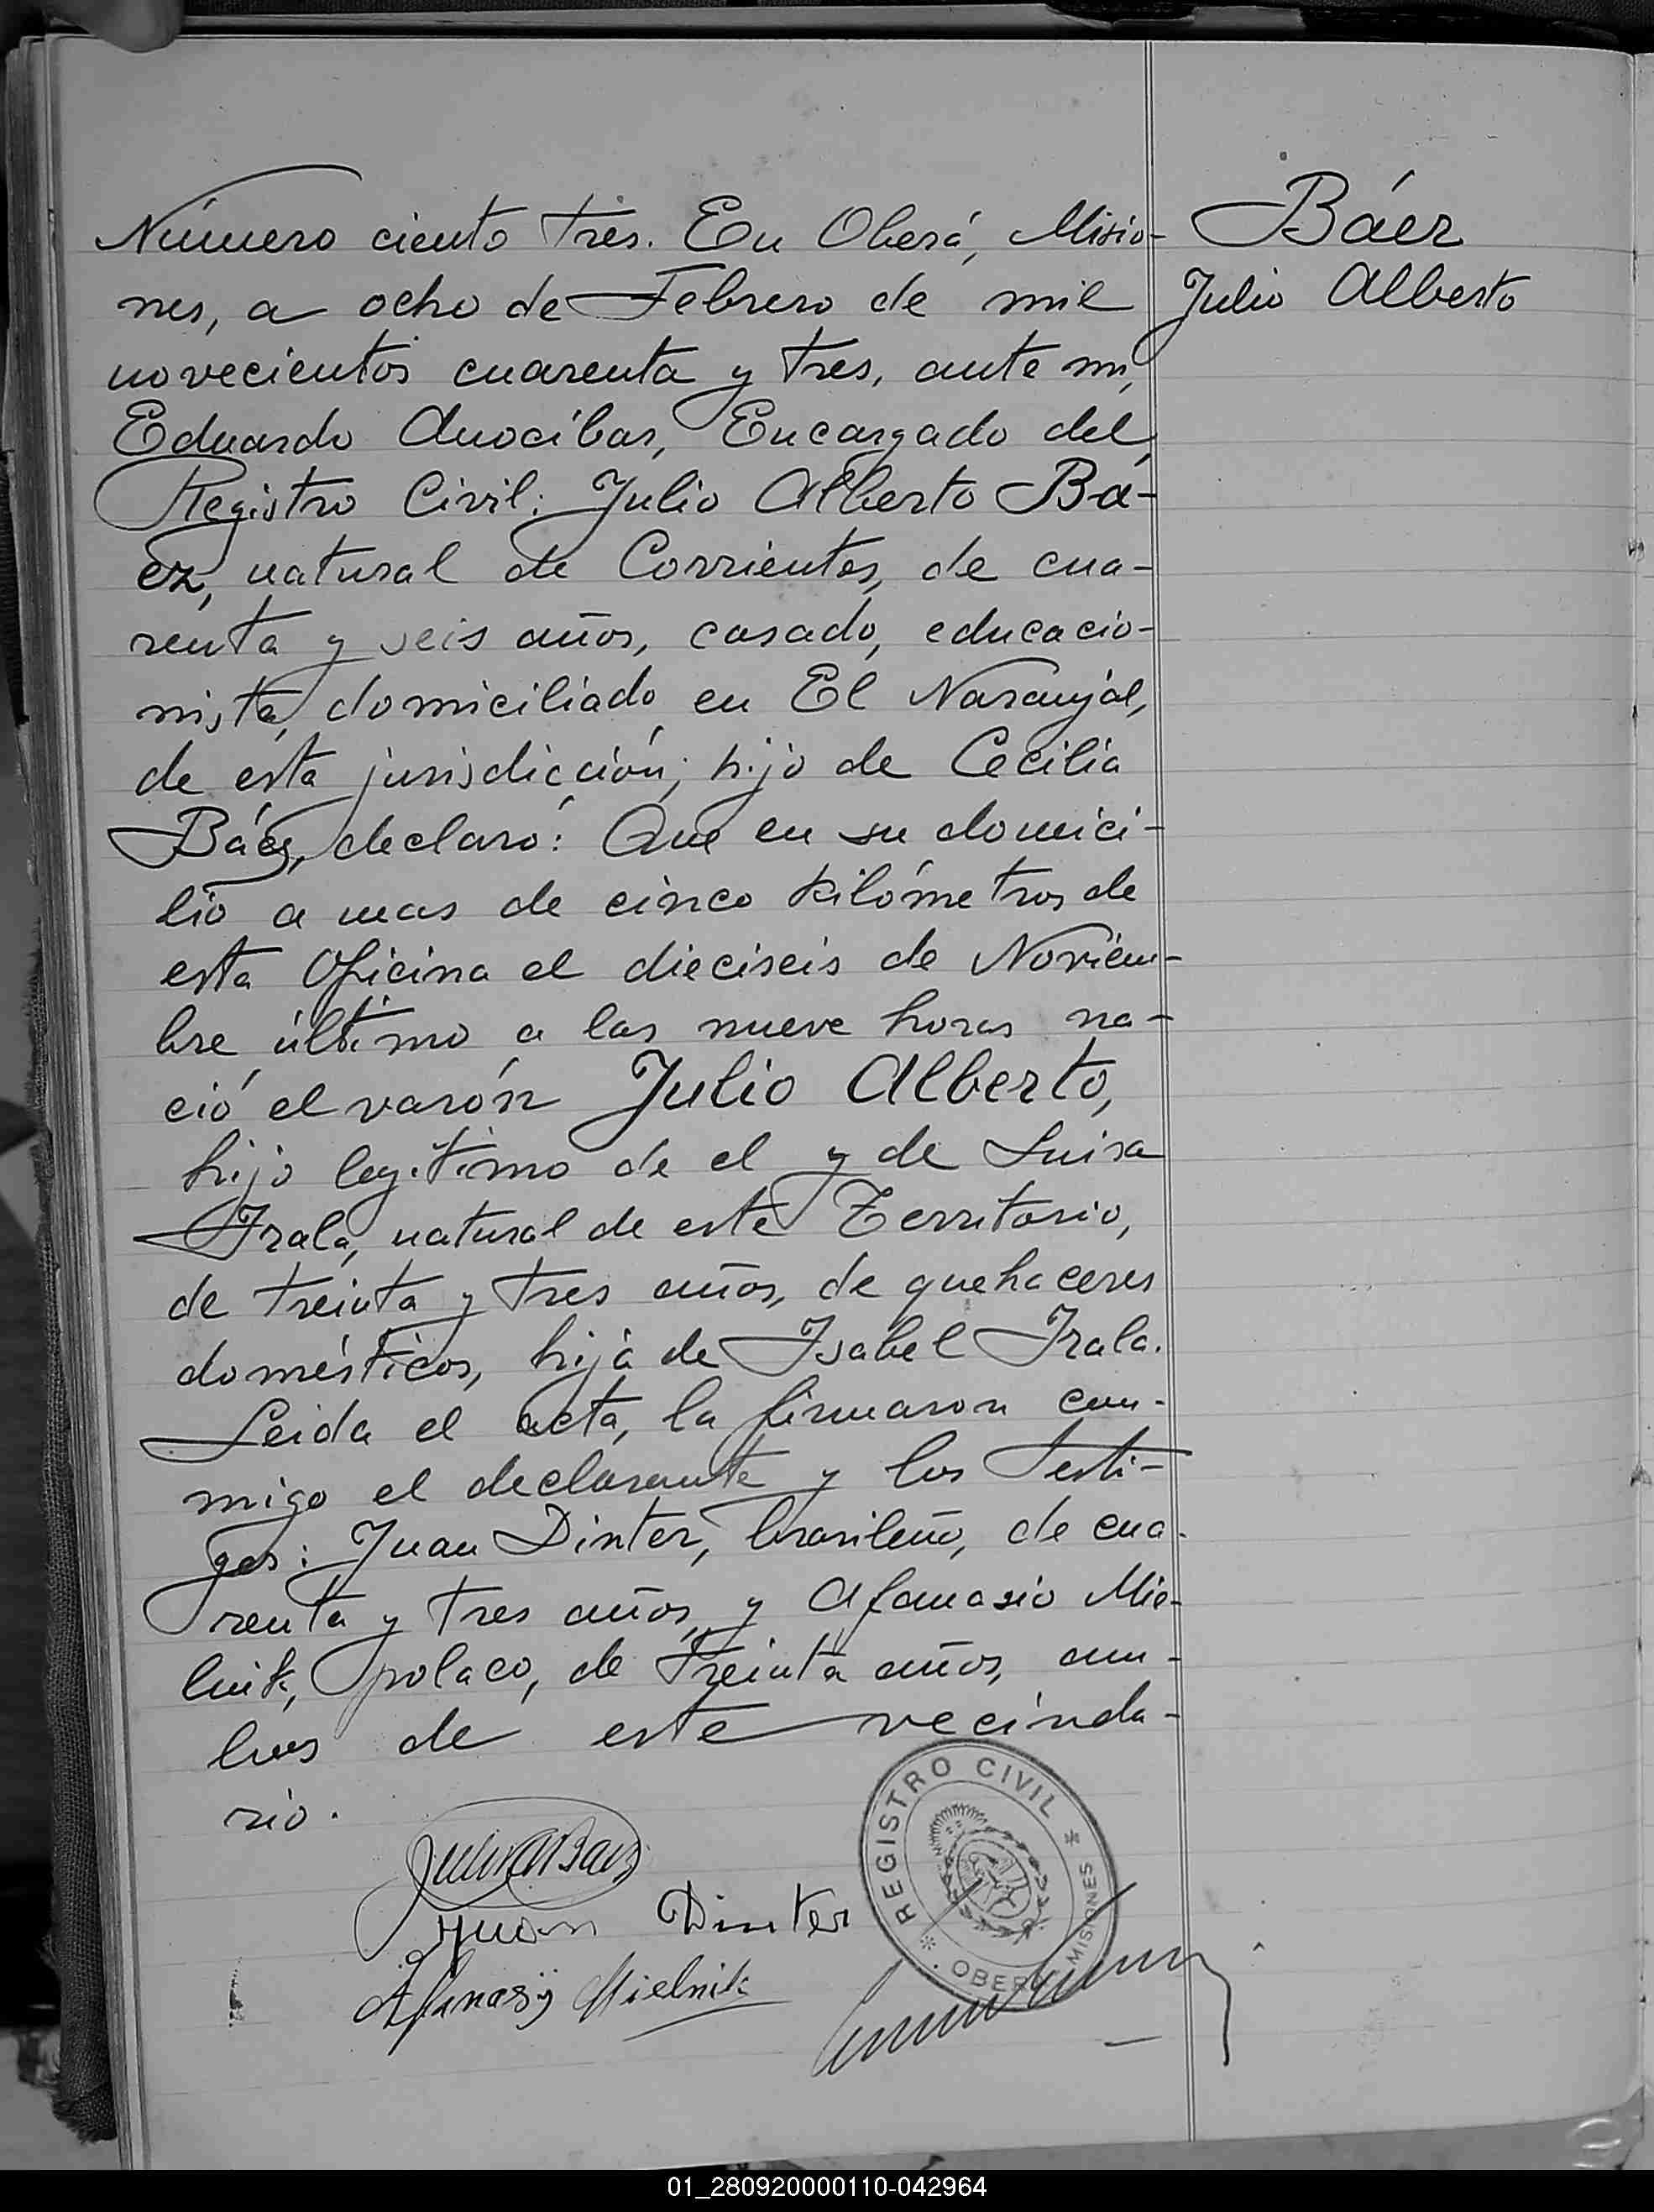 Número ciento tres. En Oberá, Misio-
nes, a ocho de Febrero de mil
novecientos cuarenta y tres, ante mi,
Eduardo Anocíbar, Encargado del
Registro Civil: Julio Alberto Bá-
ez, natural de Corrientes, de cua-
renta y seis años, casado, educacio-
nista, domiciliado en El Naranjal,
de esta jurisdicción; hijo de Cecilia
Báez, declaró: Que en su domici-
lio a mas de cinco kilómetros de
esta Oficina el dieciseis de Noviem-
bre último a las nueve horas na-
ció el varón Julio Alberto,
hijo legítimo de el y de Luisa
Irala, natural de este Territorio,
de treinta y tres años, de quehaceres
domésticos, hija de Isabel Irala.
Leida el acta, la firmaron con-
migo el declarante y los testi-
gos: Juan Dinter, brasileño, de cua-
renta y tres años, y Afanasio Mie-
lnik, polaco, de treinta años, am-
bos de este vecinda-
rio.
Báez
Julio Alberto
Julio A Baez
Juan Dinter
Afanasij Mielnik
REGISTRO CIVIL * OBERÁ MISIONES *
01_280920000110-042964